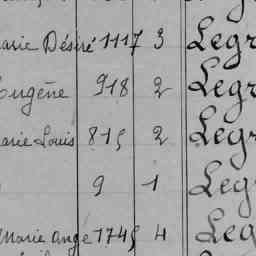 arie Désiré 1117 3 Legr
Eugène 918 2 Legr
arie Louis 815 2 Legr
9 1 Leg
Marie Ange 1745 4 Leg